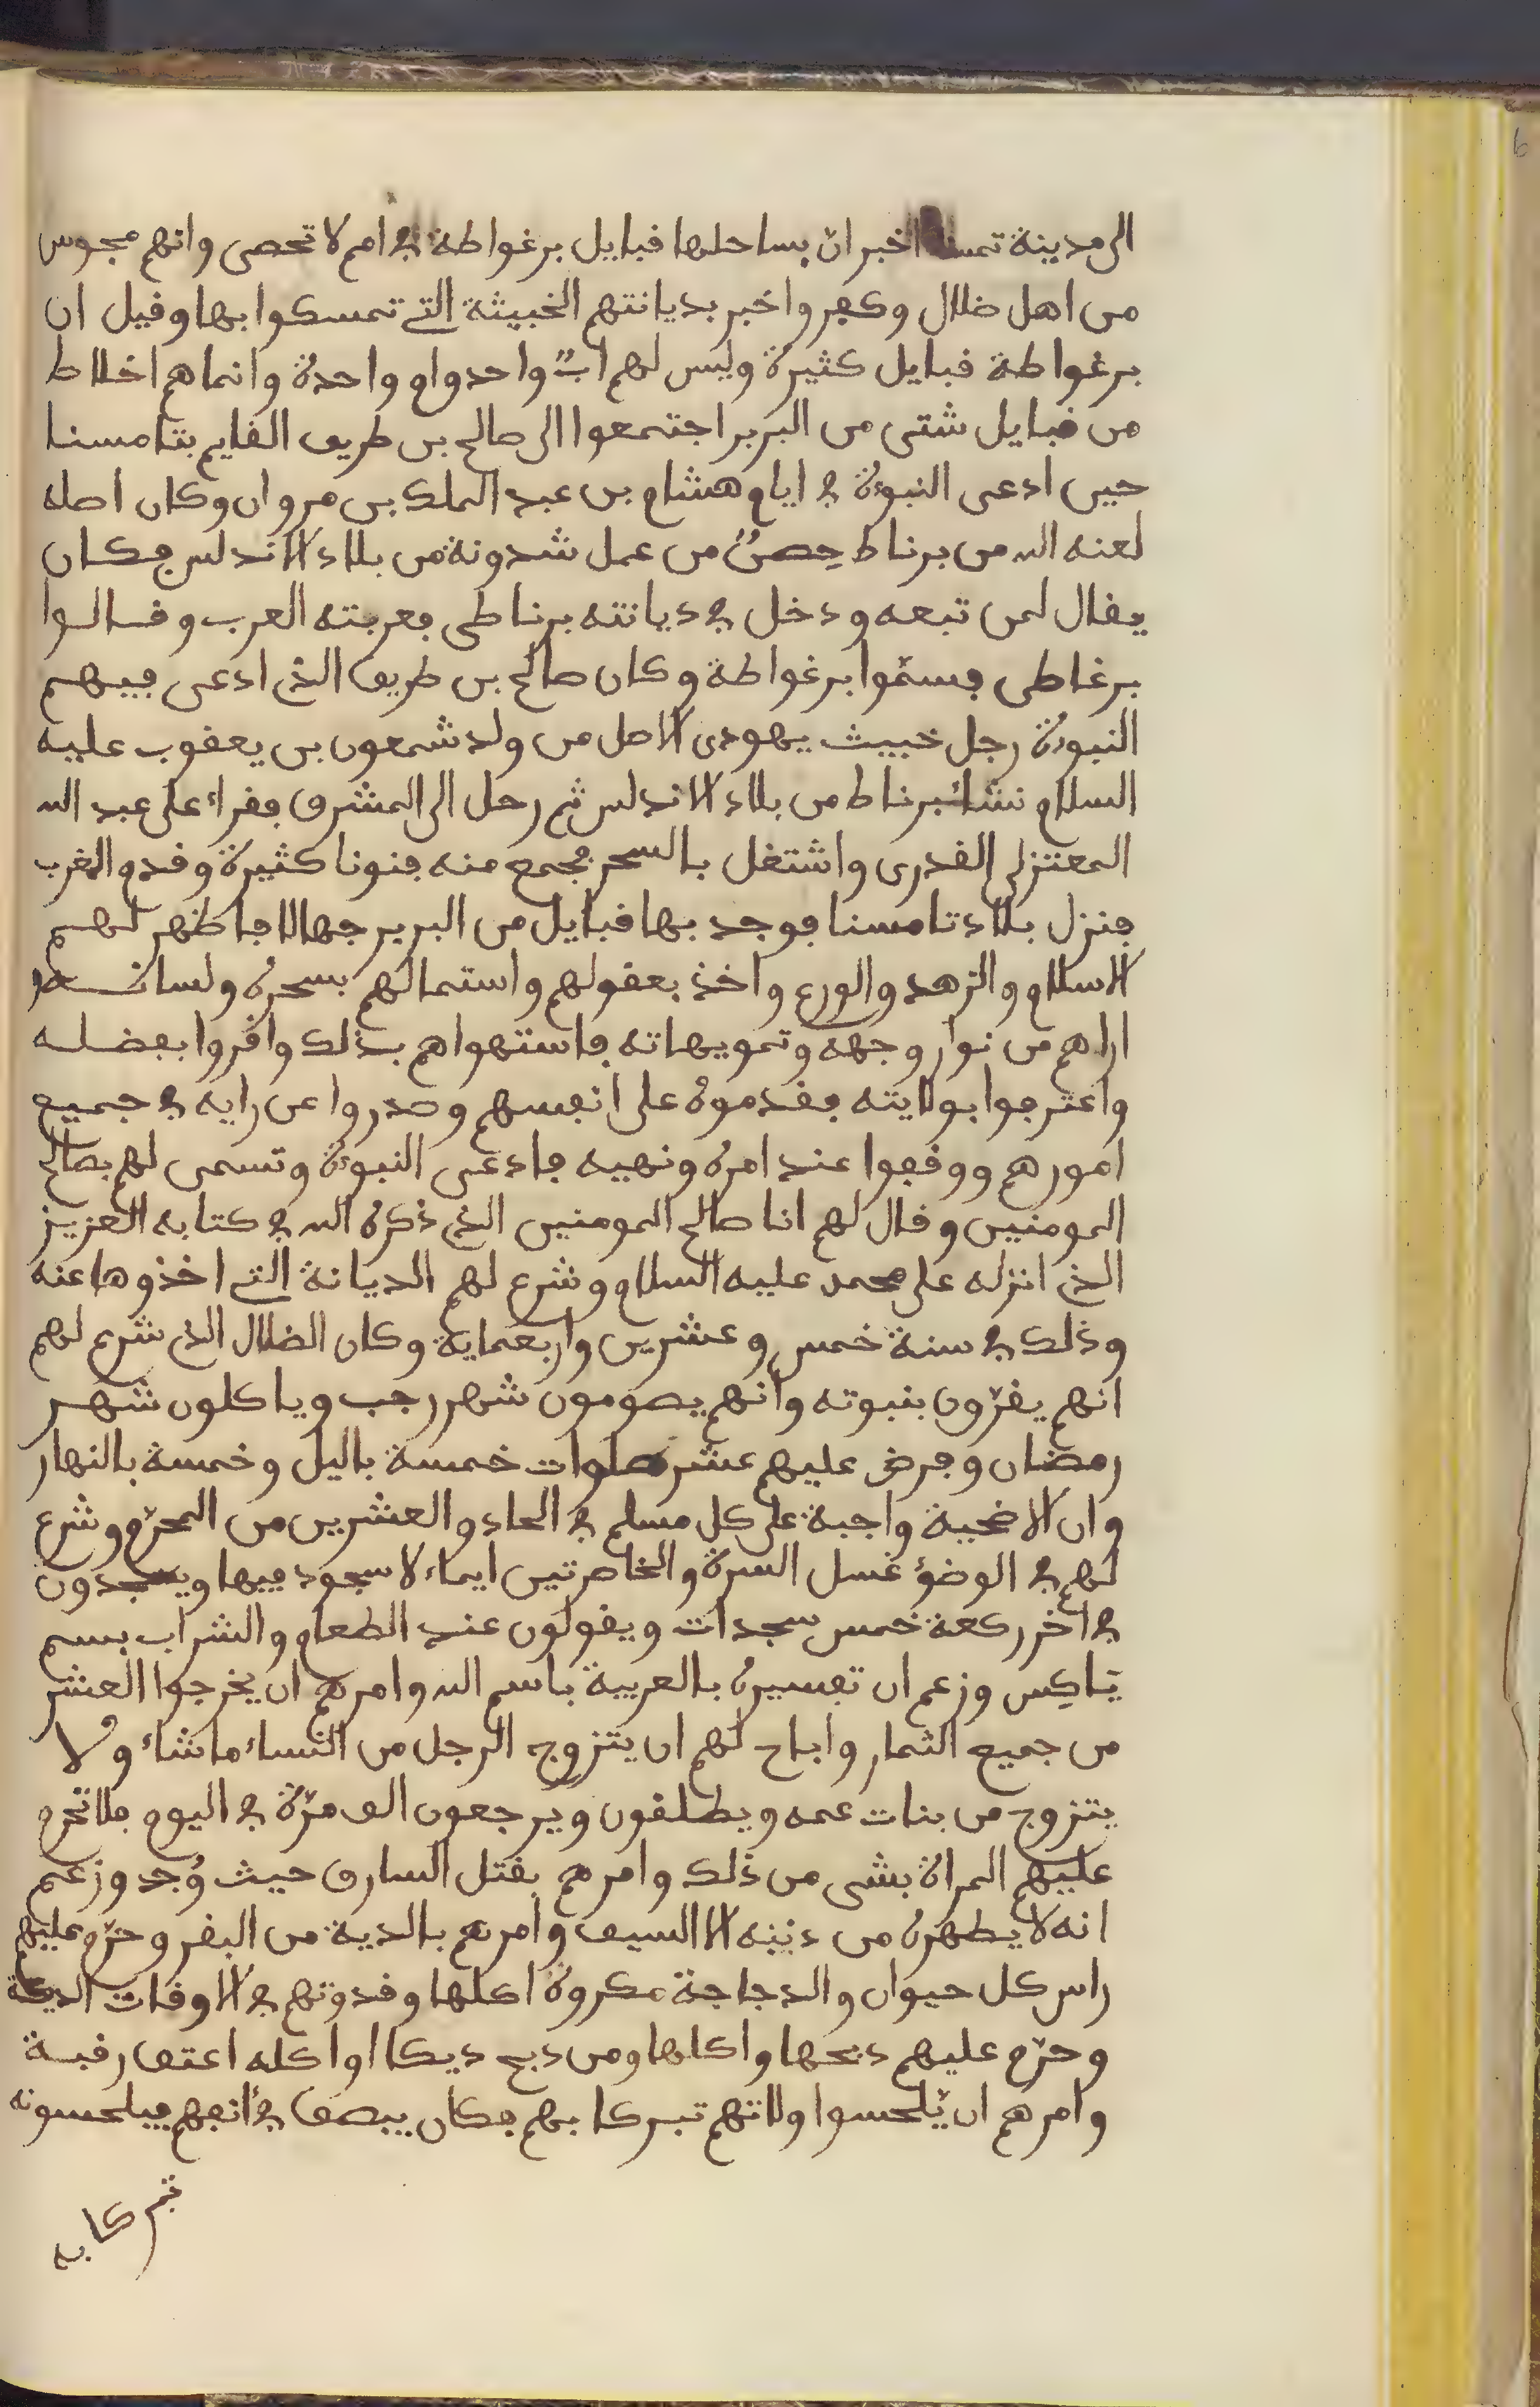 الى مدينة تمسنا اخبر ان بساحلها قبايل برغواطة في امم لا تحصى وانهم مجوس
من اهل ضلال وكفر واخبر بديانتهم الخبيثة التي تمسكوا بها وقيل ان
برغواطة قبايل كثيرة وليس لهم ابٌ واحد وام واحدة وانما هم اخلاط
من قبايل شتى من البربر اجتمعوا الى صالح بن طريف القايم بتامسنا
حين ادعى النبوة في ايام هشام بن عبد الملك بن مروان وكان اصله
لعنه الله من برناط حِصنٌ من عمل شدونة من بلاد الاندلس فكان
يقال لمن تبعه ودخل في ديانته برناطى فعربته العرب وقالوا
برغاطى فسمّوا برغواطة وكان صالح بن طريف الذي ادعى فيهم
النبوة رجل خبيث يهودى الاصل من ولد شمعون بن يعقوب عليه
السلام نشأ ببرناط من بلاد الاندلس ثم رحل الى المشرق فقراء على عبد الله
المعتزلى القدرى واشتغل بالسحر فجمع منه فنونا كثيرة وقدم المغرب
فنزل بلاد تامسنا فوجد بها قبايل من البربر جهالا فاظهر لهم
الاسلام والزهد والورع واخذ بعقولهم واستمالهم بسحره ولسانه و
اراهم من نوار وجهه وتمويهاته فاستهواهم بذلك واقروا بفضله
واعترفوا بولايته فقدموه على انفسهم وصدروا عن رايه في جميع
امورهم ووقفوا عند امره ونهيه فادعى النبوة وتسمى لهم بصالح
المومنين وقال لهم انا صالح المومنين الذي ذكره الله في كتابه العزيز
الذي انزله على محمد عليه السلام وشرع لهم الديانة التي اخذوها عنه
وذلك في سنة خمس وعشرين واربعماية وكان الضلال الذي شرع لهم
انهم يقرّون بنبوته وانهم يصومون شهر رجب وياكلون شهر
رمضان وفرض عليهم عشر صلوات خمسة باليل وخمسة بالنهار
وان الاضحية واجبة على كل مسلم في الحاد والعشرين من المحرّم وشرع
لهم في الوضؤ غسل السرة والخاصرتين ايماء لا سجود فيها ويسجدون
في اخر ركعة خمس سجدات ويقولون عند الطعام والشراب بسم
يَاكِس وزعم ان تفسيره بالعربية باسم الله وامرهم ان يخرجوا العشر
من جميع الثمار واباح لهم ان يتزوج الرجل من النساء ما شاء ولا
يتزوج من بنات عمه ويطلقون ويرجعون الف مرّة في اليوم فلا تحرم
عليهم المراة بشى من ذلك وامرهم بقتل السارق حيث وُجد وزعم
انه لا يطهره من ذنبه الا السيف وامرهم بالدية من البقر وحرّم عليهم
راس كل حيوان والدجاجة مكروه اكلها وقدوتهم في الاوقات الديكة
وحرّم عليهم ذبحها واكلها ومن ذبح ديكا او اكله اعتق رقبة
وامرهم ان يّلحسوا ولاتهم تبركا بهم فكان يبصق في اكفهم فيلحسونه
تبركا به